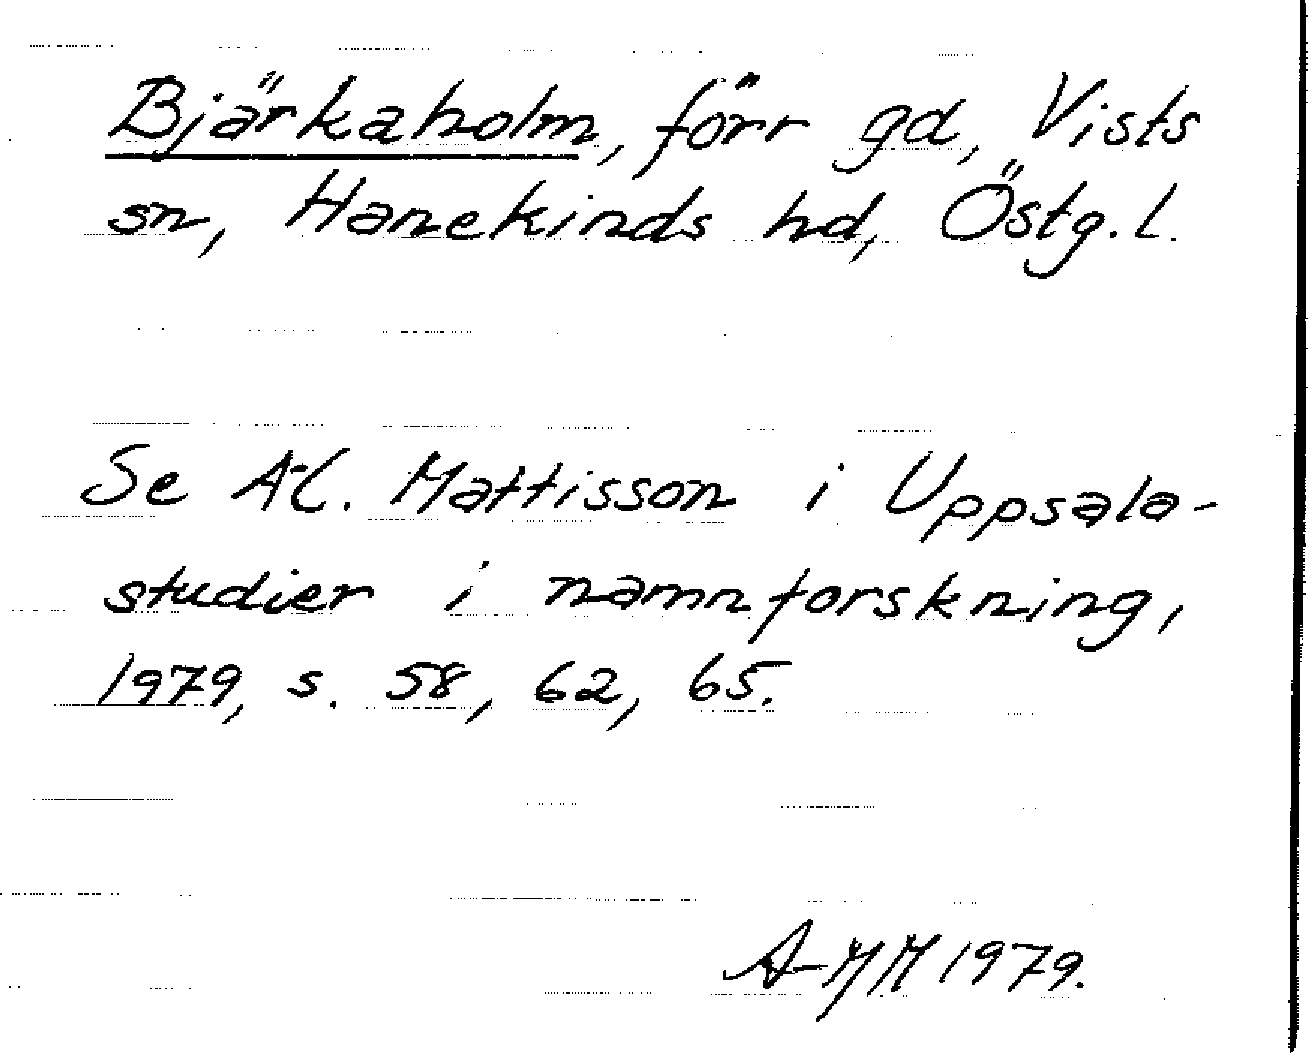 Bjärkaholm, förr gd, Vists
sn, Hanekinds hd, Östg. l.
Se A-C. Mattisson i Uppsala-
studier i namnforskning,
1979, s. 58, 62, 65.
A-MM 1979.